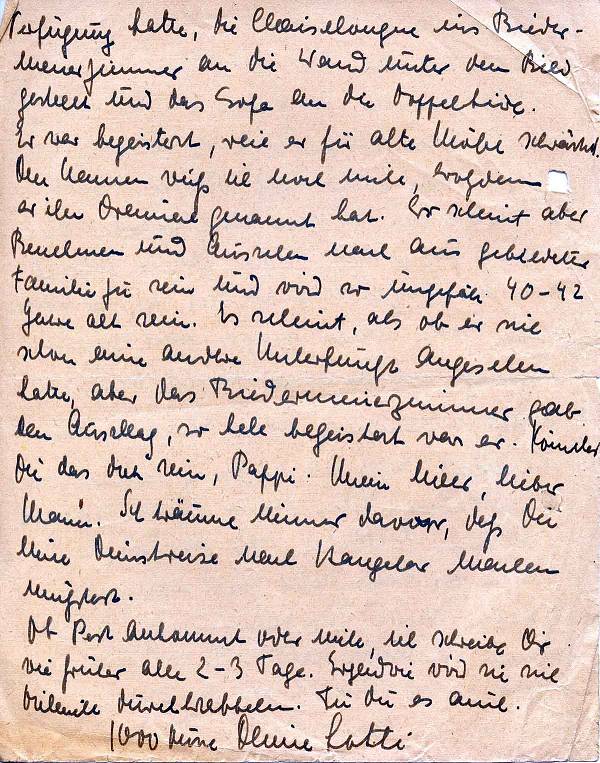 Verfügung hatte, die Chaiselongue ins Bieder-
meierzimmer an die Wand unter dem Bild
gestellt und das Sofa an die
Er war begeistert, weil er für alte Möbel schwärmt.
Den Namen weiß ich noch nicht, trotzdem
er ihn Dremiere genannt hat. Er scheint aber
Benehmen und Aussehen nach aus gebildeter
Familie zu sein und wird so ungefähr 40-42
Jahre alt sein. Es scheint, als ob er sich
schon eine andere Unterkunft angesehen
hatte, aber das Biedermeierzimmer gab
den Ausschlag, so hell begeistert war er. Könntest
Du das doch sein, Pappi. Mein lieber, lieber
Mann. Ich träume immer davon, daß Du
eine Dienstreise nach machen
müßtest.
Ob Post ankommt oder nicht, ich schreibe Dir
wie früher alle 2-3 Tage. Irgendwie wird sie sich
vielleicht durchkrabbeln. Tu Du es auch.
1000 Küsse Deine Lotti